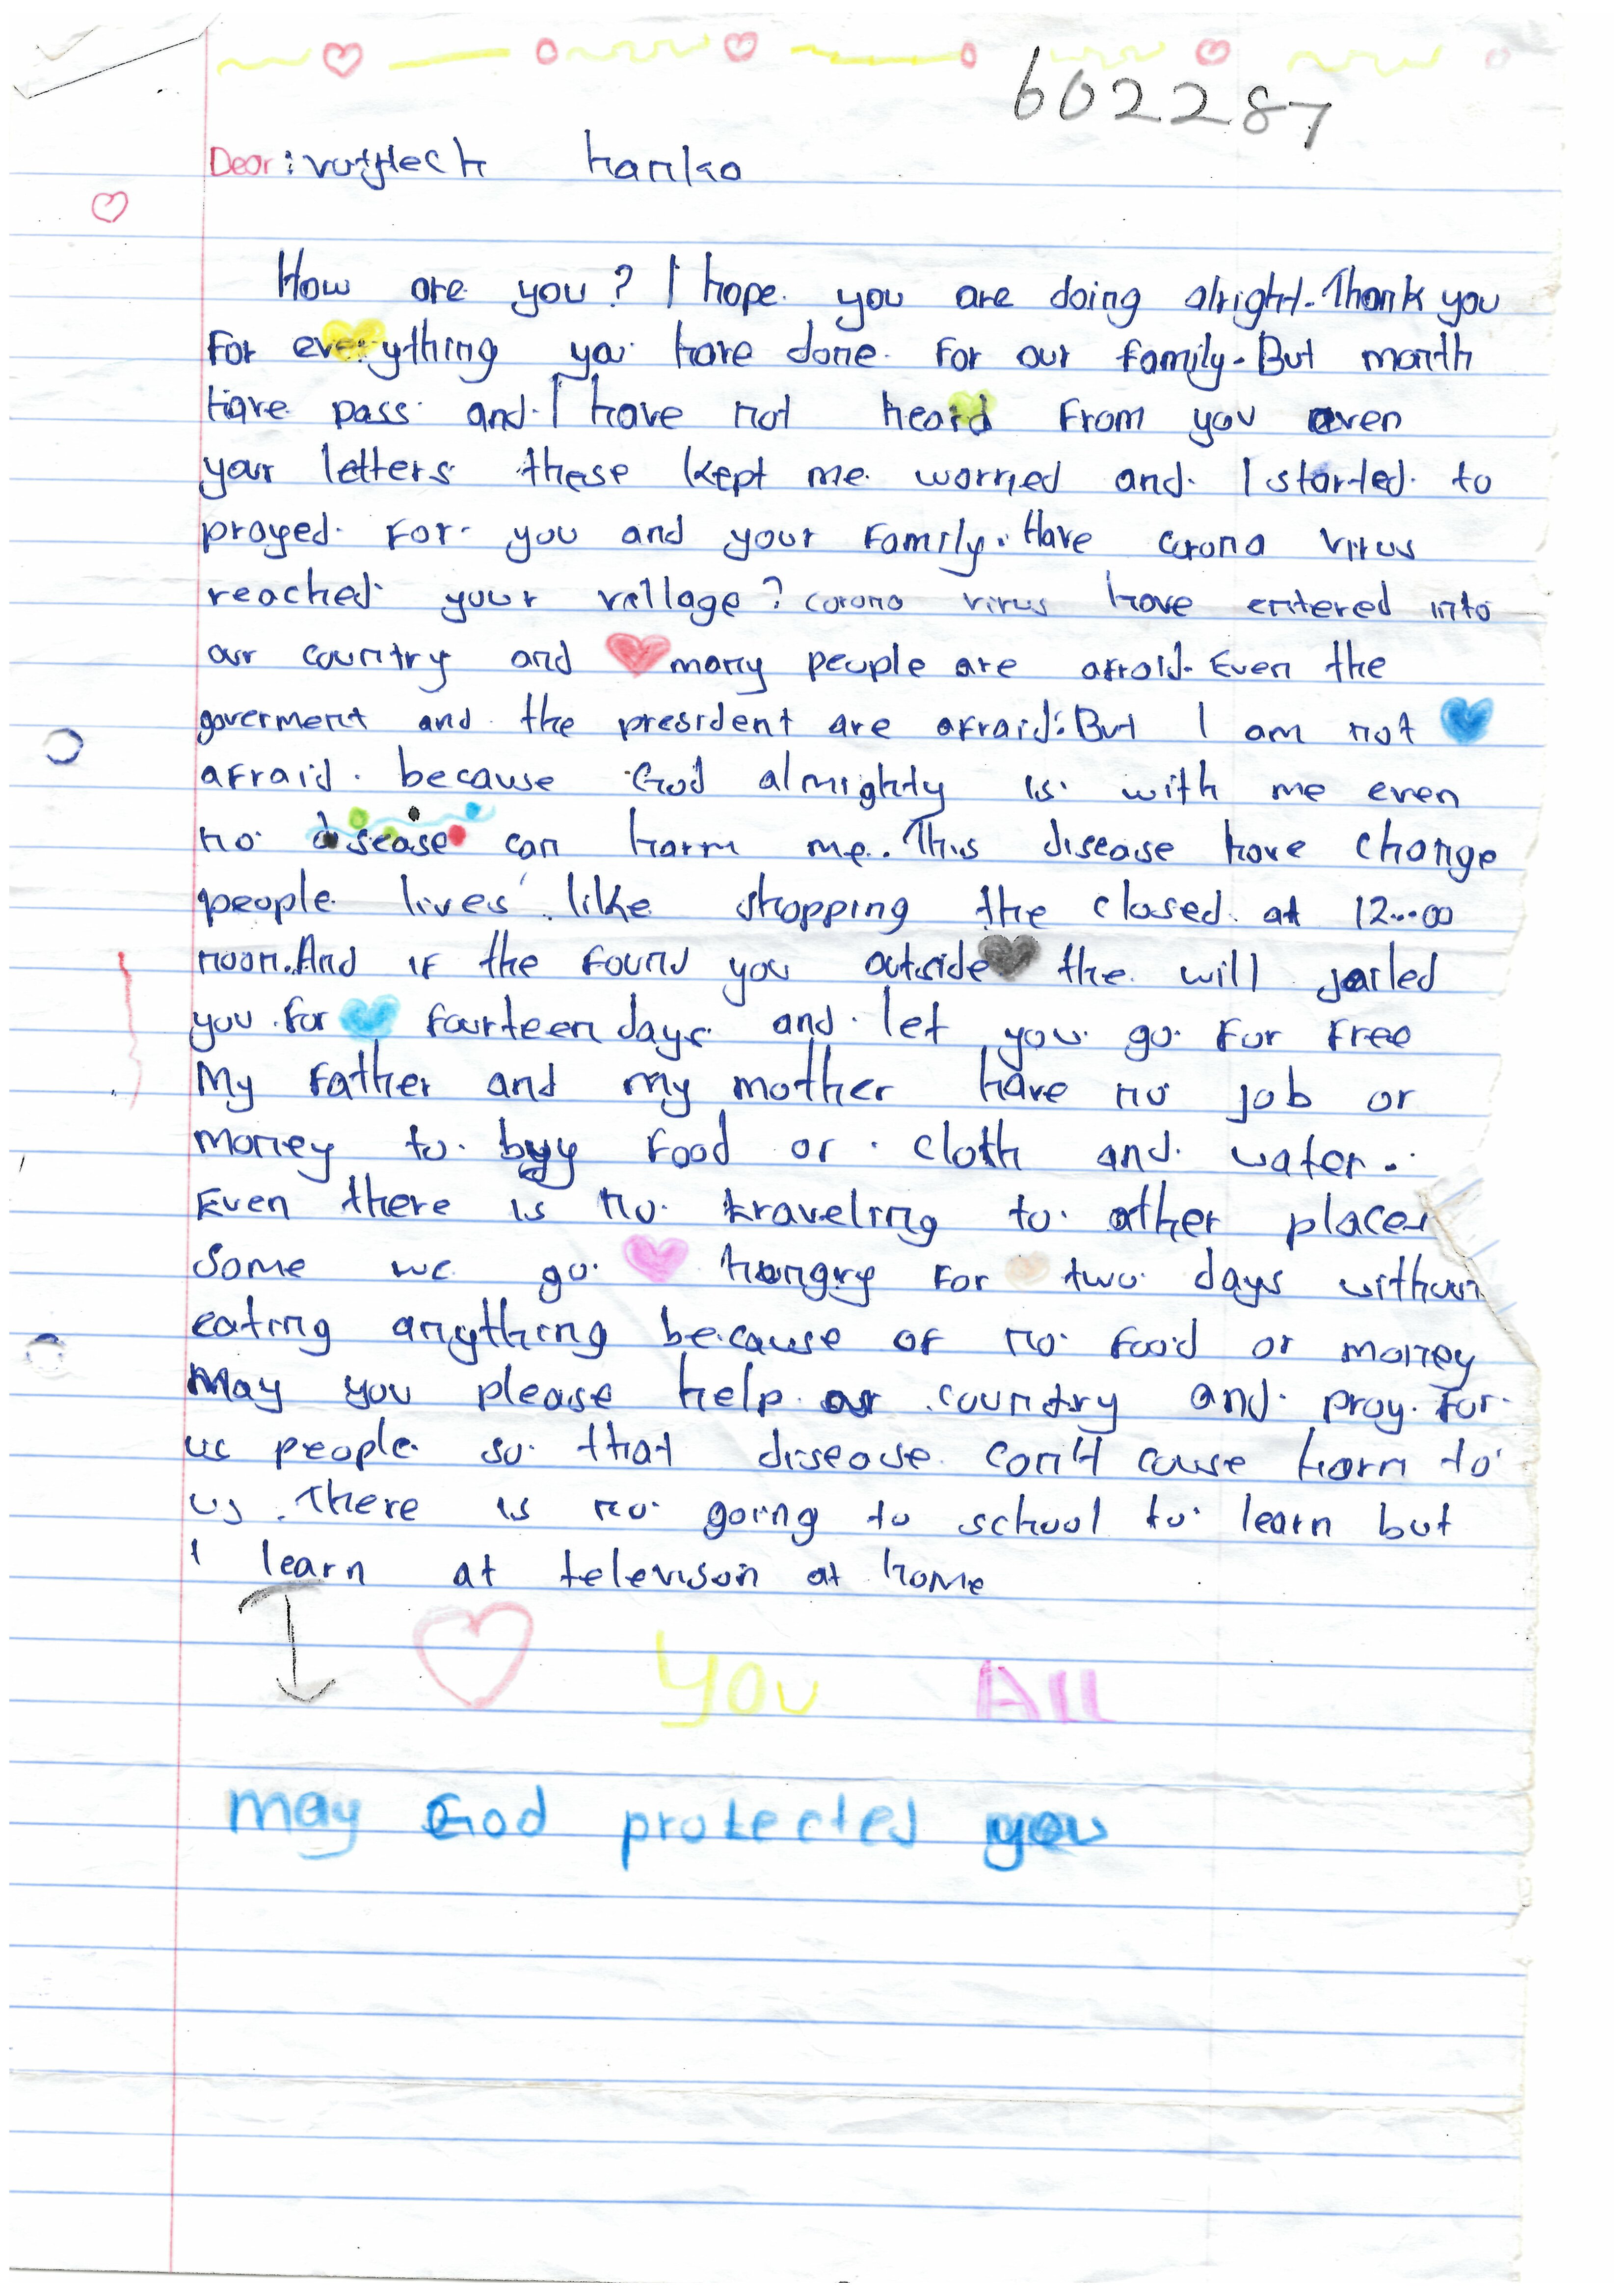 602287
Dear: vojtech hanko
How are you? I hope you are doing alright. Thank you
For everything you have done For our family. But month
have pass and I have not heard From you even
your letters these kept me worried and I started to
prayed For you and your Family. Have corona virus
reached your village? corona virus have entered into
our country and many people are afraid. Even the
goverment and the president are afraid. But I am not
afraid because God almighty is with me even
no disease can harm me. This disease have change
people lives like shopping the closed at 12..00
noon. And iF the Found you outside the will jailed
you for fourteen days and let you go For Free
My Father and my mother have no job or
money to buy Food or cloth and water.
Even there is no traveling to other places
Some we go hungry For two days without
eating anything because of no Food or money
May you please help our country and pray For
us people so that disease can't cause harm to
us. There is no going to school to learn but
I learn at televison at home
You All
may God protected you